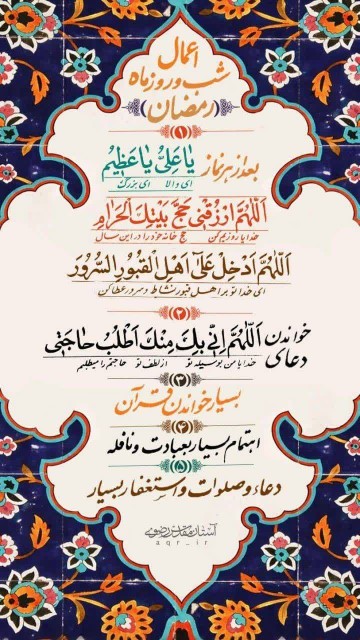 اعمال
شب و روز ماه
(رمضان)
(۱)
بعد از هر نماز یا عَلِیُّ یا عَظیمُ
ای والا ای بزرگ
اَللّهُمَّ ارْزُقْنی حَجَّ بَیْتِكَ الْحَرامِ
خدایا روزیم کن حج خانه خود را در این سال
اَللّهُمَّ اَدْخِلْ عَلیٰ اَهْلِ الْقُبُورِ السُّرُورَ
ای خدا تو بر اهل قبور نشاط و سرور عطا کن
(۲)
خواندن دعای اَللّهُمَّ اِنّی بِكَ وَمِنْكَ اَطْلُبُ حاجَتی
خدایا من بوسیله تو از لطف تو حاجتم را میطلبم
(۳)
بسیار خواندن قرآن
(۴)
اهتمام بسیار بعبادت و نافله
(۵)
دعاء و صلوات و استغفار بسیار
آستان مقدس رضوی
aqr_ir